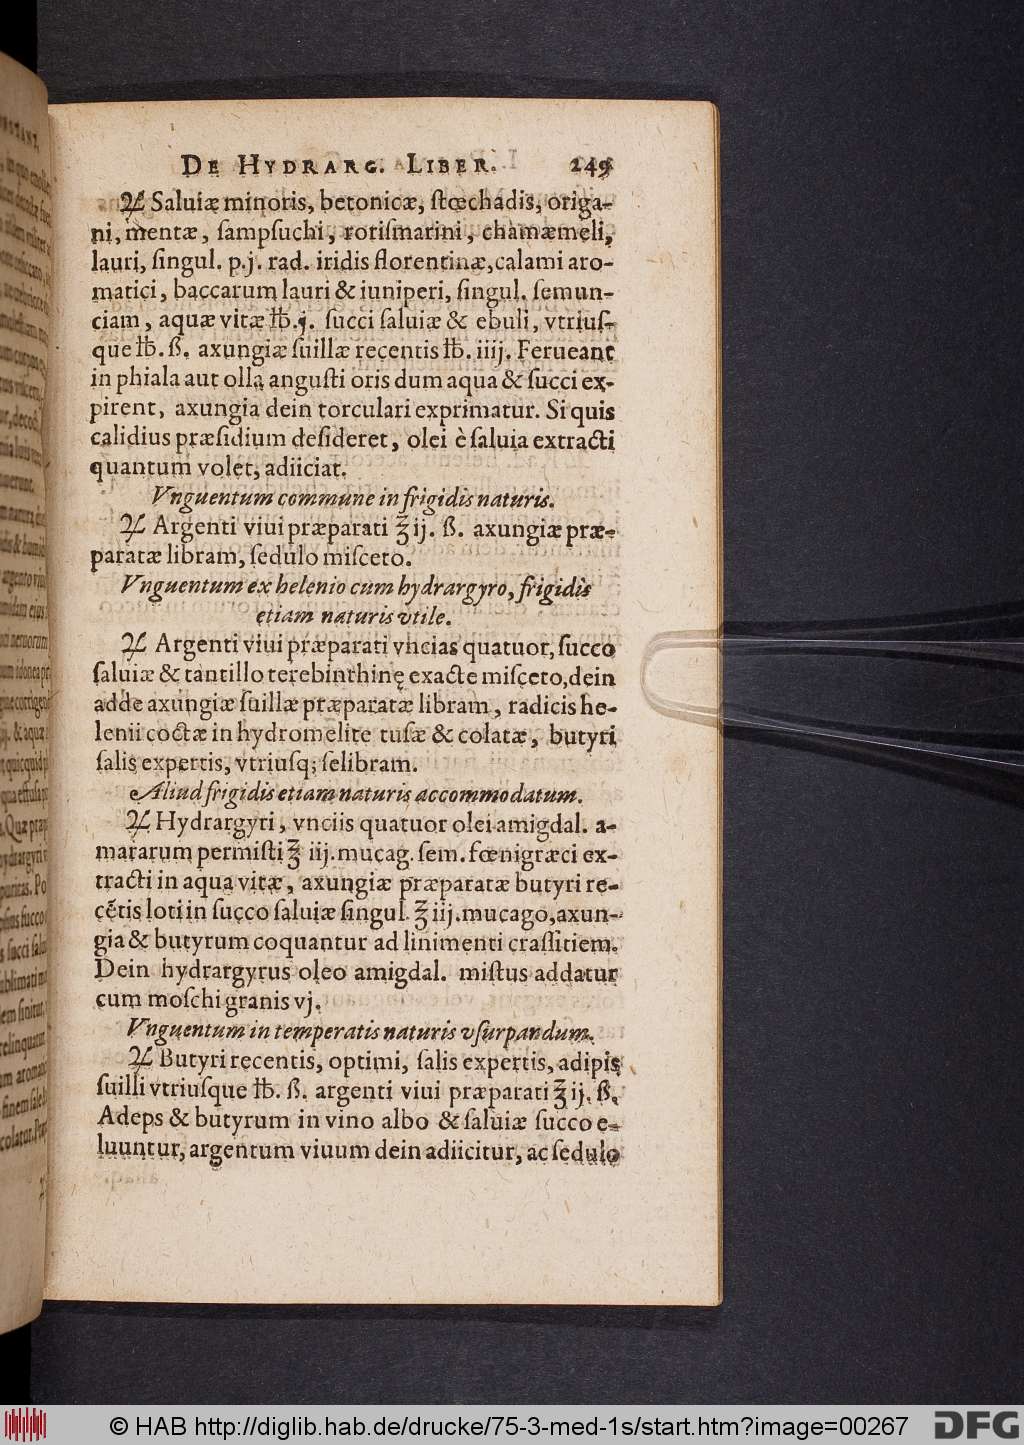 De Hydrarg. Liber. 249
℞ Saluiæ minoris, betonicæ, stœchadis, origa-
ni, mentæ, sampsuchi, rorismarini, chamæmeli,
lauri, singul. p.j. rad. iridis florentinæ, calami aro-
matici, baccarum lauri & iuniperi, singul. semun-
ciam, aquæ vitæ ℔.j. succi saluiæ & ebuli, vtrius-
que ℔. ß. axungiæ suillæ recentis ℔. iiij. Ferueant
in phiala aut olla angusti oris dum aqua & succi ex-
pirent, axungia dein torculari exprimatur. Si quis
calidius præsidium desideret, olei è saluia extracti
quantum volet, adiiciat.
Vnguentum commune in frigidis naturis.
℞ Argenti viui præparati ℥ ij. ß. axungiæ præ-
paratæ libram, sedulo misceto.
Vnguentum ex helenio cum hydrargyro, frigidis
etiam naturis vtile.
℞ Argenti viui præparati vncias quatuor, succo
saluiæ & tantillo terebinthinę exacte misceto, dein
adde axungiæ suillæ præparatæ libram, radicis he-
lenii coctæ in hydromelite tusæ & colatæ, butyri
salis expertis, vtriusq; selibram.
Aliud frigidis etiam naturis accommodatum.
℞ Hydrargyri, vnciis quatuor olei amigdal. a-
mararum permisti ℥ iij. mucag. sem. fœnigræci ex-
tracti in aqua vitæ, axungiæ præparatæ butyri re-
cẽtis loti in succo saluiæ singul. ℥ iij. mucago, axun-
gia & butyrum coquantur ad linimenti crassitiem.
Dein hydrargyrus oleo amigdal. mistus addatur
cum moschi granis vj.
Vnguentum in temperatis naturis vsurpandum.
℞ Butyri recentis, optimi, salis expertis, adipis
suilli vtriusque ℔. ß. argenti viui præparati ℥ ij. ß.
Adeps & butyrum in vino albo & saluiæ succo e-
luuntur, argentum viuum dein adiicitur, ac sedulo
© HAB http://diglib.hab.de/drucke/75-3-med-1s/start.htm?image=00267
DFG